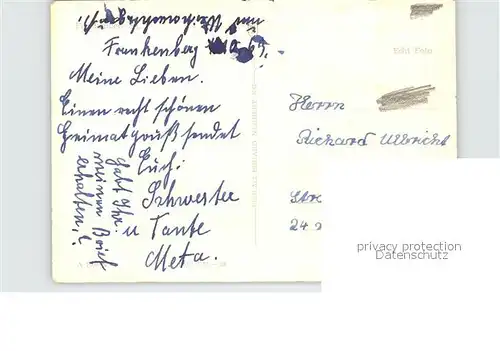 Frankenberg
Meine Lieben.
Einen recht schönen
Heimatgruß sendet
Euch:
Schwester
u Tante
Meta.
Habt Ihr
meinen Brief
erhalten?
Echt Foto
Herrn
Richard Ulbricht
Str
24
privacy protection
Datenschutz